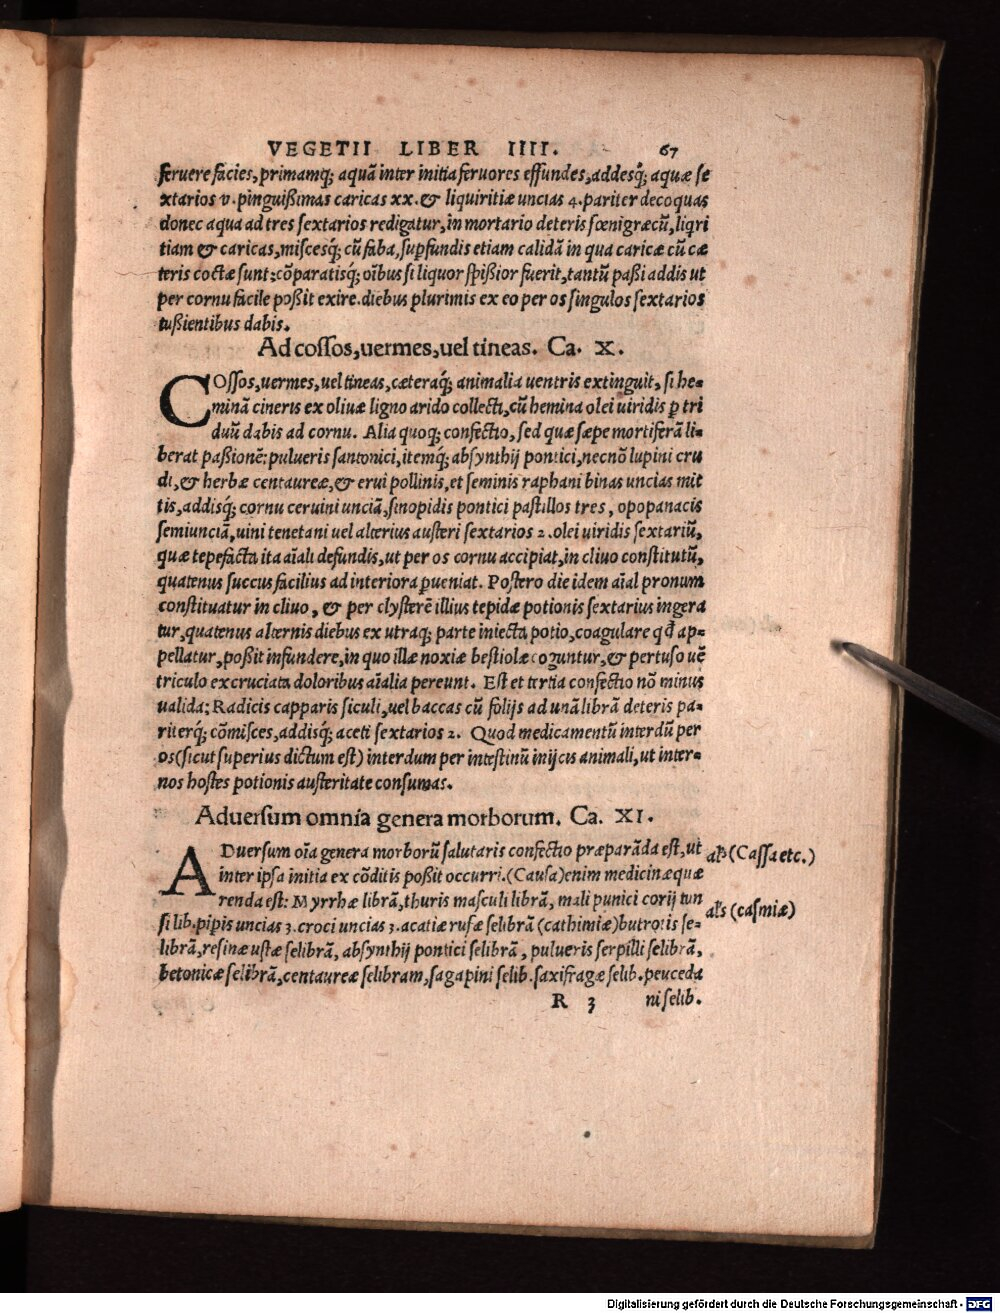 VEGETII LIBER IIII. 67
feruere facies, primamq́; aquã inter initia feruores effundes, addesq́; aquæ se
xtarios v. pinguißimas caricas xx. & liquiritiæ uncias 4. pariter decoquas
donec aqua ad tres sextarios redigatur, in mortario deteris fœnigræcũ, liqri
tiam & caricas, miscesq́; cũ faba, supfundis etiam calidã in qua caricæ cũ cæ
teris coctæ sunt: cõparatisq́; oĩbus si liquor spißior fuerit, tantũ paßi addis ut
per cornu facile poßit exire. diebus plurimis ex eo per os singulos sextarios
tußientibus dabis.
Ad cossos, uermes, uel tineas. Ca. X.
COssos, uermes, uel tineas, cæteraq́; animalia uentris extinguit, si he=
minã cineris ex oliuæ ligno arido collecti, cũ hemina olei uiridis p tri
duũ dabis ad cornu. Alia quoq; confectio, sed quæ sæpe mortiferã li=
berat paßionẽ: pulueris santonici, itemq́; absynthij pontici, necnõ lupini cru
di, & herbæ centaureæ, & erui pollinis, et seminis raphani binas uncias mit
tis, addisq́; cornu ceruini unciã, sinopidis pontici pastillos tres, opopanacis
semiunciã, uini tenetani uel alterius austeri sextarios 2. olei uiridis sextariũ,
quæ tepefacta ita aĩali defundis, ut per os cornu accipiat, in cliuo constitutũ,
quatenus succus facilius ad interiora pueniat. Postero die idem aĩal pronum
constituatur in cliuo, & per clysterẽ illius tepidæ potionis sextarius ingera
tur, quatenus alternis diebus ex utraq; parte iniecta potio, coagulare qđ ap=
pellatur, poßit infundere, in quo illæ noxiæ bestiolæ coguntur, & pertuso uẽ
triculo excruciata doloribus aĩalia pereunt. Est et tertia confectio nõ minus
ualida: Radicis capparis siculi, uel baccas cũ folijs ad unã librã deteris pa=
riterq́; cõmisces, addisq́; aceti sextarios 2. Quod medicamentũ interdũ per
os (sicut superius dictum est) interdum per intestinũ inijcis animali, ut inter=
nos hostes potionis austeritate consumas.
Aduersum omnia genera morborum. Ca. XI.
ADuersum oĩa genera morborũ salutaris confectio præparãda est, ut
inter ipsa initia ex cõditis poßit occurri. (Causa) enim medicinæ quæ
renda est: Myrrhæ librã, thuris masculi librã, mali punici corij tun
si lib. pipis uncias 3. croci uncias 3. acatiæ rufæ selibrã (cathimiæ) butrotis se=
librã, resinæ ustæ selibrã, absynthij pontici selibrã, pulueris serpilli selibrã,
betonicæ selibrã, centaureæ selibram, sagapini selib. saxifragæ selib. peuceda
R 3 ni selib.
als (Cassa etc.)
als (casmiæ)
Digitalisierung gefördert durch die Deutsche Forschungsgemeinschaft - DFG